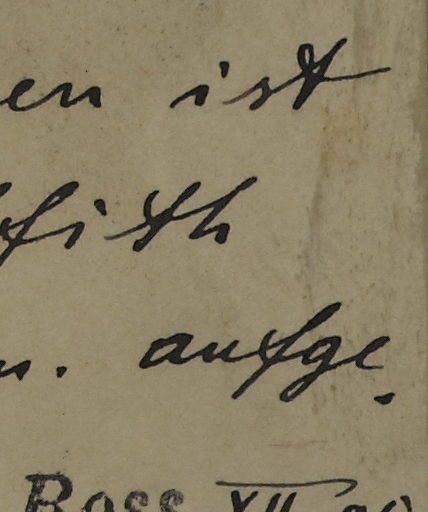 en ist
fith
n. aufge
Ross XII